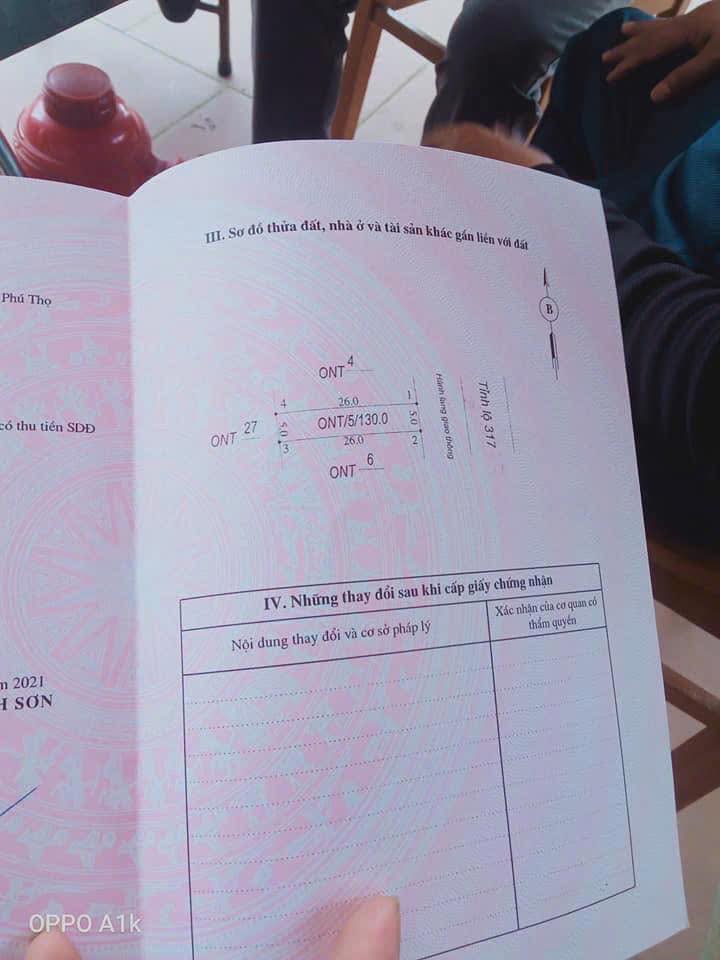 Phú Thọ
có thu tiền SDĐ
2021
SƠN
III. Sơ đồ thửa đất, nhà ở và tài sản khác gắn liền với đất
B
ONT 4
4
26.0
1
ONT 27
5.0
ONT/5/130.0
5.0
3
26.0
2
ONT 6
Hành lang giao thông
Tỉnh lộ 317
IV. Những thay đổi sau khi cấp giấy chứng nhận
Nội dung thay đổi và cơ sở pháp lý
Xác nhận của cơ quan có
thẩm quyền
OPPO A1k